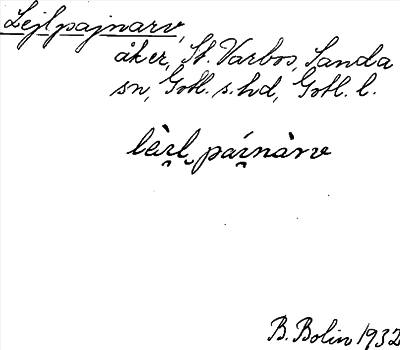 Lejlpajnarv,
åker, St. Varbos, Sanda
sn, Gotl. s. hd, Gotl. l.
lèi̯l̯ pái̯nàrv
B. Bolin 1932